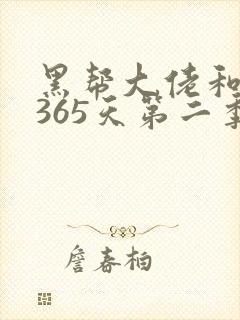 黑帮大佬和
365天第二季
詹春柏